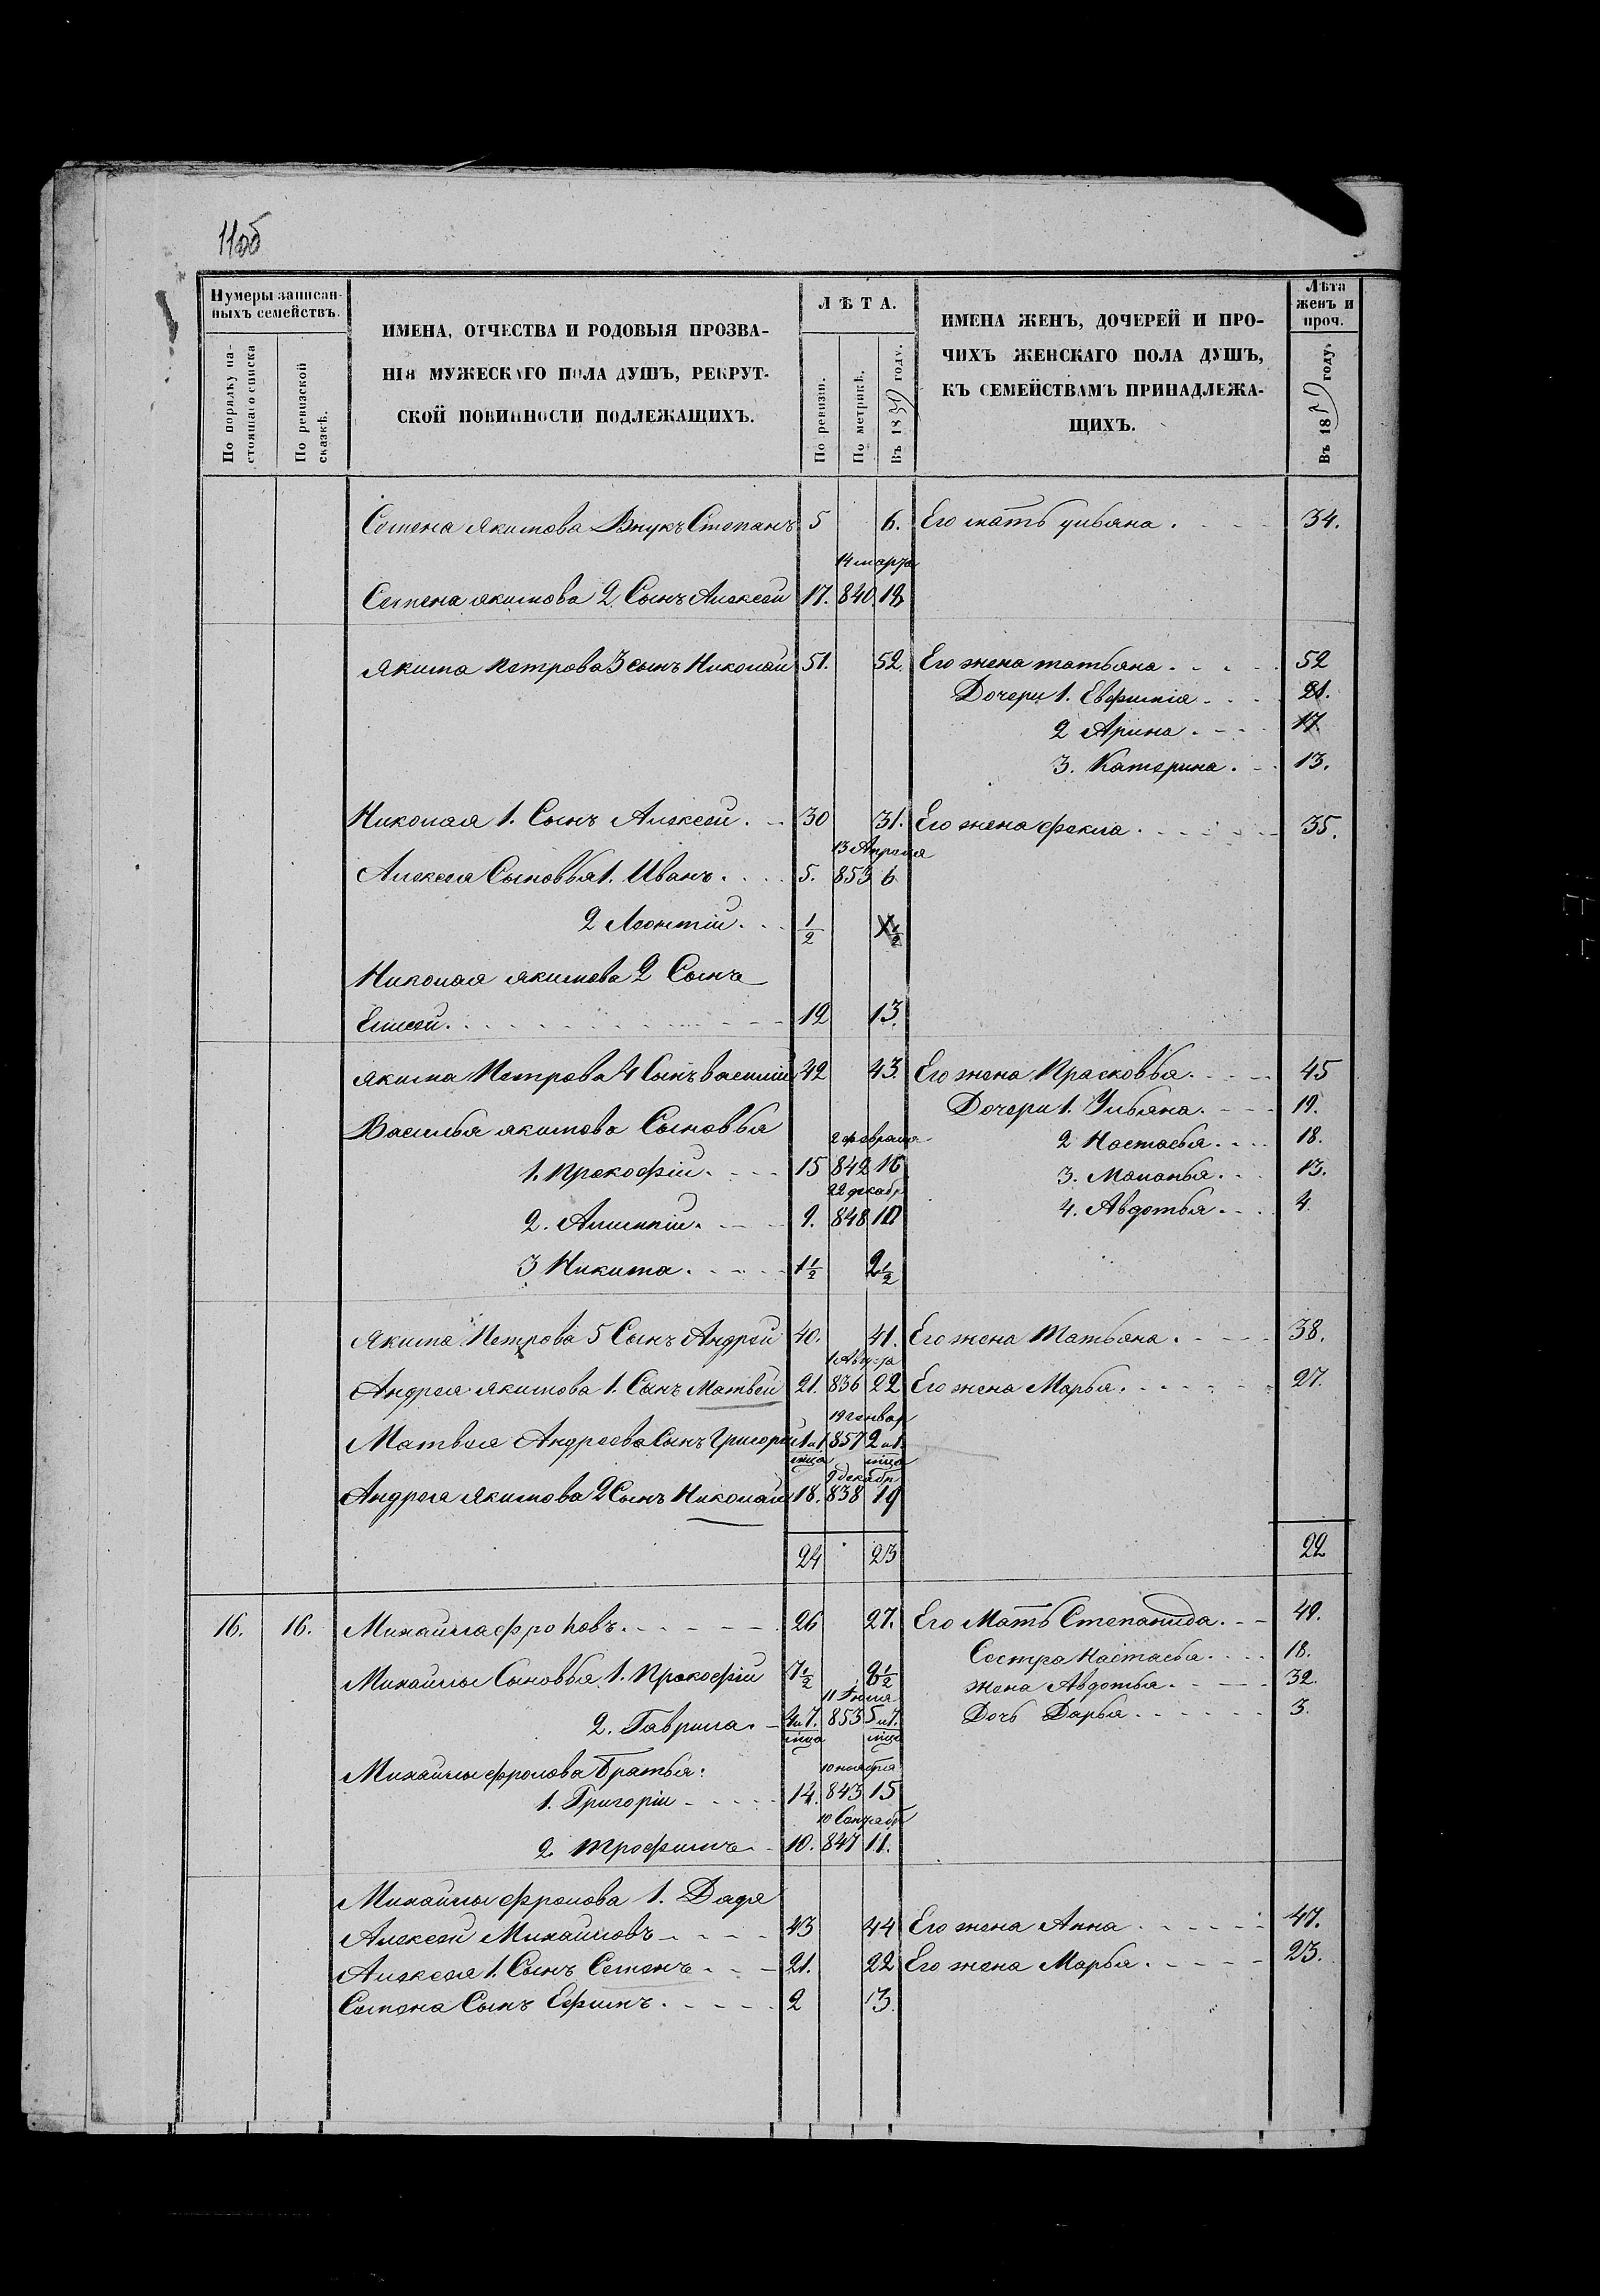 11об
Нумеры записан-
ныхъ семействъ.
По порядку на-
стоящаго списка
По ревизской
сказкѣ.
ИМЕНА, ОТЧЕСТВА И РОДОВЫЯ ПРОЗВА-
НІЯ МУЖЕСКАГО ПОЛА ДУШЪ, РЕКРУТ-
СКОЙ ПОВИННОСТИ ПОДЛЕЖАЩИХЪ.
ЛѢТА.
По ревизіи.
По метрикѣ.
Въ 18 году.
ИМЕНА ЖЕНЪ, ДОЧЕРЕЙ И ПРО-
ЧИХЪ ЖЕНСКАГО ПОЛА ДУШЪ,
КЪ СЕМЕЙСТВАМЪ ПРИНАДЛЕЖА-
ЩИХЪ.
Лѣта
женъ и
проч.
Въ 18 году.
Семена Якимова Внукъ Степанъ 5 6. Его мать ульяна. 34.
14 марта
Семена якимова 2 Сынъ Алексѣй 17. 840 18
Якима Петрова 3 сынъ Николай 51. 52. Его жена татьяна. 52
Дочери 1. Евфимія 21.
2 Арина. 17
3. Катерина. 13.
Николая 1. Сынъ Алексей. 30 31. Его жена фекла. 35.
13 Апреля
Алексея Сыновья 1. Иванъ. 5. 853 6
2 Леонтій. 1/2 1/2
Николая якимова 2 Сынъ
Елисей. 12 13.
Якима Петрова 4 Сынъ василий 42 43. Его жена Прасковья. 45
Дочери 1. Ульяна. 19.
Василья якимова Сыновья
2 февраля
2 Настасья. 18.
1. Прокофій. 15 842 16
3. Маланья. 13.
22 декабр
2. Алимпій. 9. 848 10
4. Авдотья. 4.
3 Никита. 1 1/2 2 1/2
Якима Петрова 5 Сынъ Андрей 40. 41. Его жена Татьяна. 38.
1 Августа
Андрея якимова 1. Сынъ Матвей 21. 836 22 Его жена Марья. 27.
19 генвар
Матвея Андреева Сынъ Григорій 1 и 1. мца 857 2 и 1. мца
9 декабр
Андрея Якимова 2 Сынъ Николай 18. 838 19
24 23 22
16. 16. Михайла фроловъ. 26 27. Его Мать Степанида. 49.
Сестра Настасья. 18.
Михайлы Сыновья 1. Прокофій 7 1/2 8 1/2
жена Авдотья. 32.
11 Іюля
2. Гаврила. 4 и 7. мца 853 5 и 7. мца
Дочь Дарья. 3.
Михайлы фролова Братья:
10 ноября
1. Григорій 14. 843 15
10 Сентябр
2. Трофимъ 10. 847 11.
Михайлы фролова 1. Дядя
Алексей Михайловъ 43 44 Его жена Анна 47.
Алексея 1. Сынъ Семенъ 21. 22 Его жена Марья. 23.
Семена Сынъ Ефимъ. 2 3.